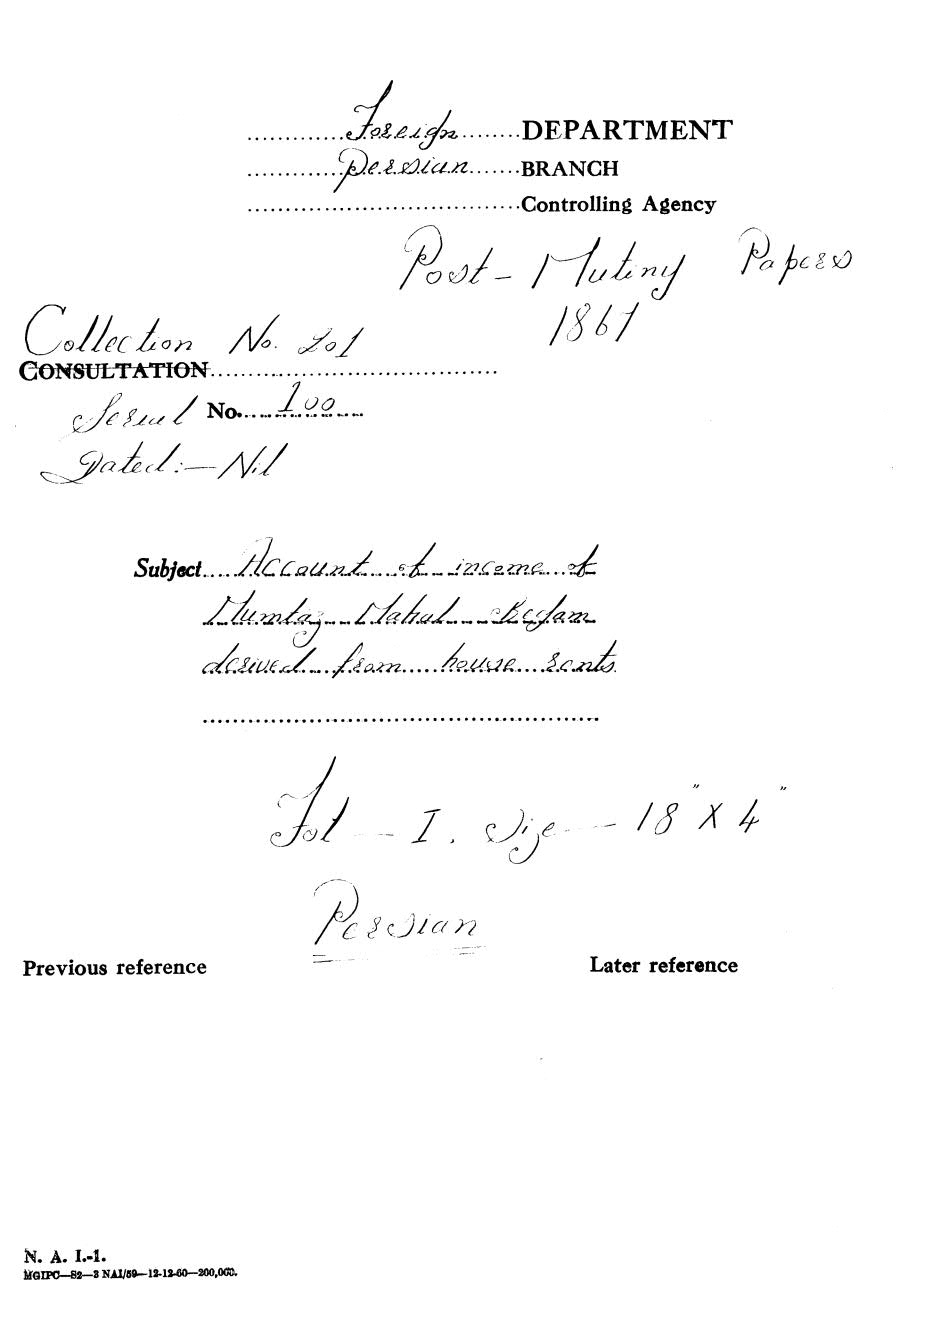 Foreign DEPARTMENT
Persian BRANCH
Controlling Agency
Post-Mutiny Papers
1867
Collection No. 201
CONSULTATION
Serial No. 100
Dated:— Nil
Subject Account of income of
Mumtaz Mahal Begam
derived from house rents
Fol — I. Size — 18" X 4"
Persian
Previous reference Later reference
N. A. I.-1.
MGIPC—S2—3 NAI/59—12-12-60—200,000.